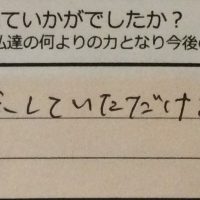 ていかがでしたか?
私達の何よりの力となり今後の
していただけ